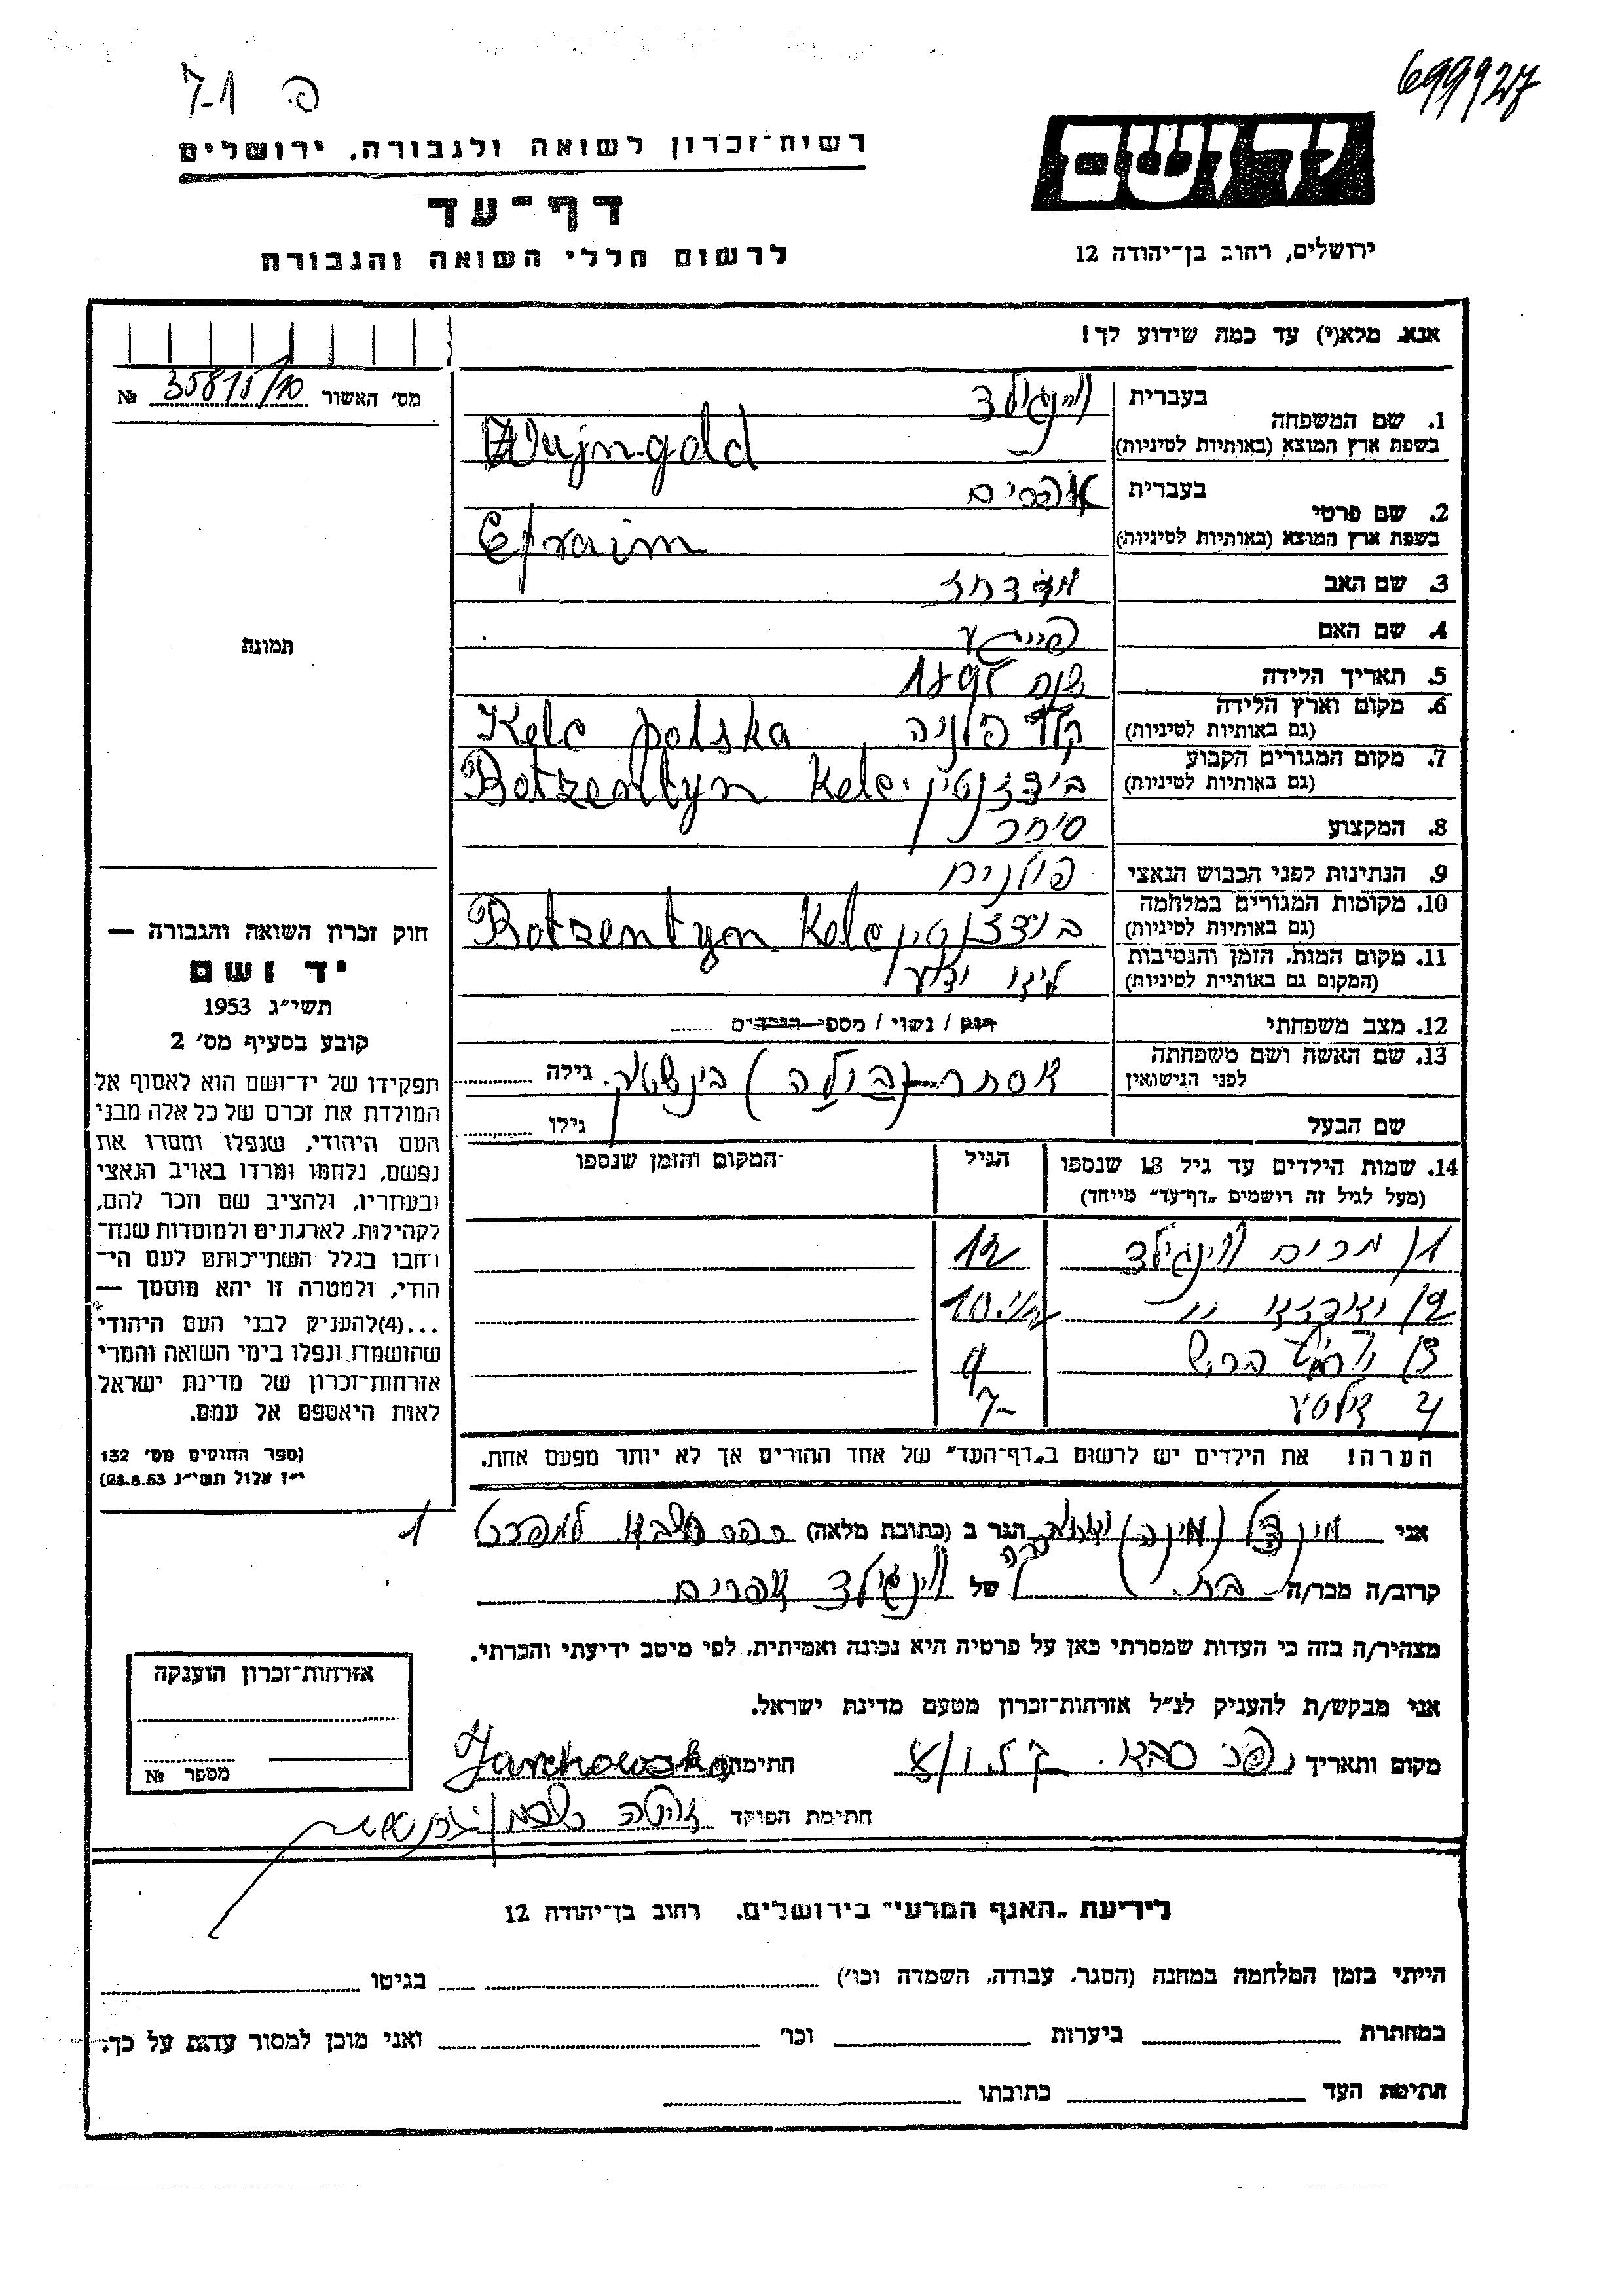 699927
פ. 7-1
יד ושם
רשות־זכרון לשואה ולגבורה, ירושלים
דף־עד
לרשום חללי השואה והגבורה
ירושלים, רחוב בן־יהודה 12
אנא, מלא(י) עד כמה שידוע לך!
מס׳ האשור 35815/10 №
תמונה
1. שם המשפחה
בעברית וינגולד
בשפת ארץ המוצא (באותיות לטיניות) Wujngold
2. שם פרטי
בעברית אפרים
בשפת ארץ המוצא (באותיות לטיניות) Efraim
3. שם האב
4. שם האם פייגע
5. תאריך הלידה שנת 1895
6. מקום וארץ הלידה (גם באותיות לטיניות) קלץ פולניה, Kelc polska
7. מקום המגורים הקבוע (גם באותיות לטיניות) בודזנטין Botzentyn Kelc
8. המקצוע סוחר
9. הנתינות לפני הכבוש הנאצי פולנית
10. מקומות המגורים במלחמה (גם באותיות לטיניות) בודזנטין Botzentyn Kelc
11. מקום המות, הזמן והנסיבות (המקום גם באותיות לטיניות) לא ידוע
12. מצב משפחתי רווק / נשוי / מספר הילדים
13. שם האשה ושם משפחתה לפני הנישואין אסתר גילה
שם הבעל גילו
14. שמות הילדים עד גיל 18 שנספו (מעל לגיל זה רושמים „דף־עד״ מיוחד) הגיל המקום והזמן שנספו
1/ מרים וינגולד 12
2/ 10
3/ הרש 9
4 7-
הערה! את הילדים יש לרשום ב„דף־העד״ של אחד ההורים אך לא יותר מפעם אחת.
חוק זכרון השואה והגבורה —
יד ושם
תשי״ג 1953
קובע בסעיף מס׳ 2
תפקידו של יד־ושם הוא לאסוף אל
המולדת את זכרם של כל אלה מבני
העם היהודי, שנפלו ומסרו את
נפשם, נלחמו ומרדו באויב הנאצי
ובעוזריו, ולהציב שם וזכר להם,
לקהילות, לארגונים ולמוסדות שנח־
רחבו בגלל השתייכותם לעם הי־
הודי, ולמטרה זו יהא מוסמך —
...(4)להעניק לבני העם היהודי
שהושמדו ונפלו בימי השואה והמרי
אזרחות־זכרון של מדינת ישראל
לאות היאספם אל עמם.
(ספר החוקים מס׳ 132
י״ז אלול תשי״ג 28.8.53)
אני מינדל (מינה) הגר ב (כתובת מלאה) כפר סבא 1
קרוב/ה מכר/ה בת של וינגולד אפרים
מצהיר/ה בזה כי העדות שמסרתי כאן על פרטיה היא נכונה ואמיתית, לפי מיטב ידיעתי והכרתי.
אני מבקש/ת להעניק לנ״ל אזרחות־זכרון מטעם מדינת ישראל.
מקום ותאריך כפר סבא חתימה Jarchowska
חתימת הפוקד
אזרחות־זכרון הוענקה
מספר №
לידיעת „האגף המדעי״ בירושלים, רחוב בן־יהודה 12
הייתי בזמן המלחמה במחנה (הסגר, עבודה, השמדה וכו׳) בגיטו
במחתרת ביערות וכו׳ ואני מוכן למסור עדות על כך.
חתימת העד כתובתו